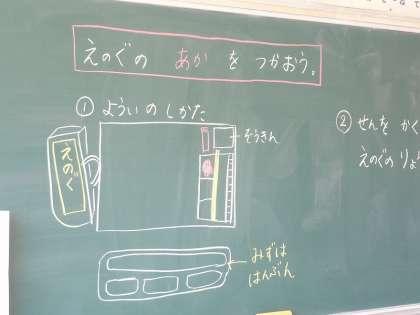 えのぐの あか を つかおう。
① よういの しかた
えのぐ
ぞうきん
みずは
はんぶん
② せんを かく
えのぐの りょ